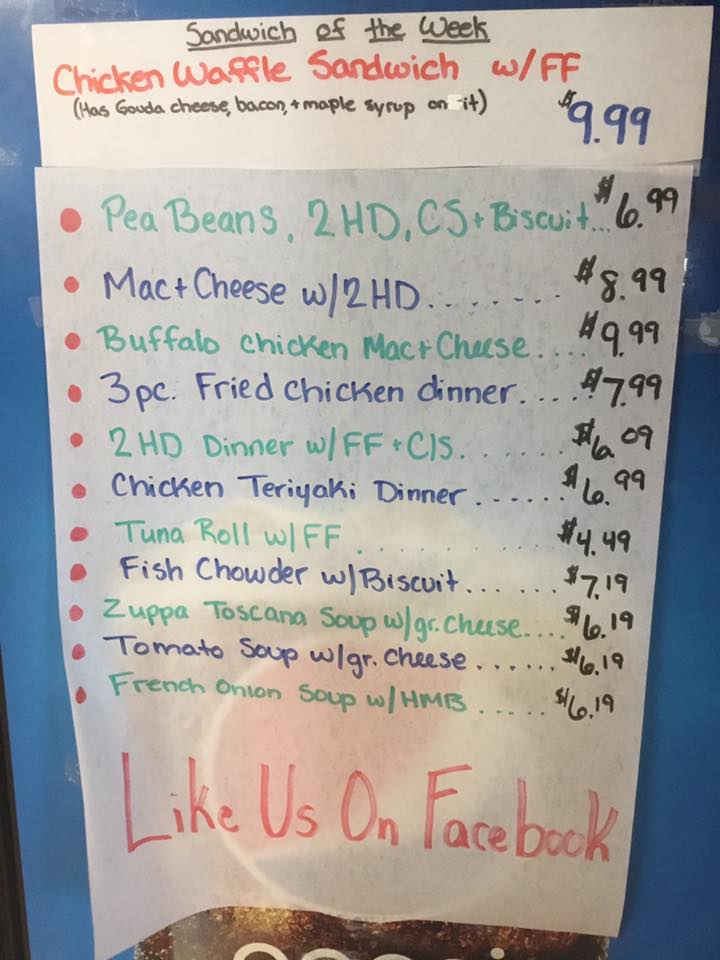 Sandwich of the Week
Chicken Waffle Sandwich w/FF
(Has Gouda cheese, bacon, + maple syrup on it) $9.99
Pea Beans, 2 HD, CS + Biscuit... $6.99
Mac + Cheese w/2HD........ $8.99
Buffalo Chicken Mac + Cheese.... $9.99
3pc. Fried Chicken dinner.... $7.99
2 HD Dinner w/FF + C/S....... $6.09
Chicken Teriyaki Dinner...... $6.99
Tuna Roll w/FF .......... $4.49
Fish Chowder w/Biscuit.... $7.19
Zuppa Toscana Soup w/gr. Cheese.... $6.19
Tomato Soup w/gr. Cheese...... $6.19
French Onion Soup w/HMB ..... $6.19
Like Us On Facebook